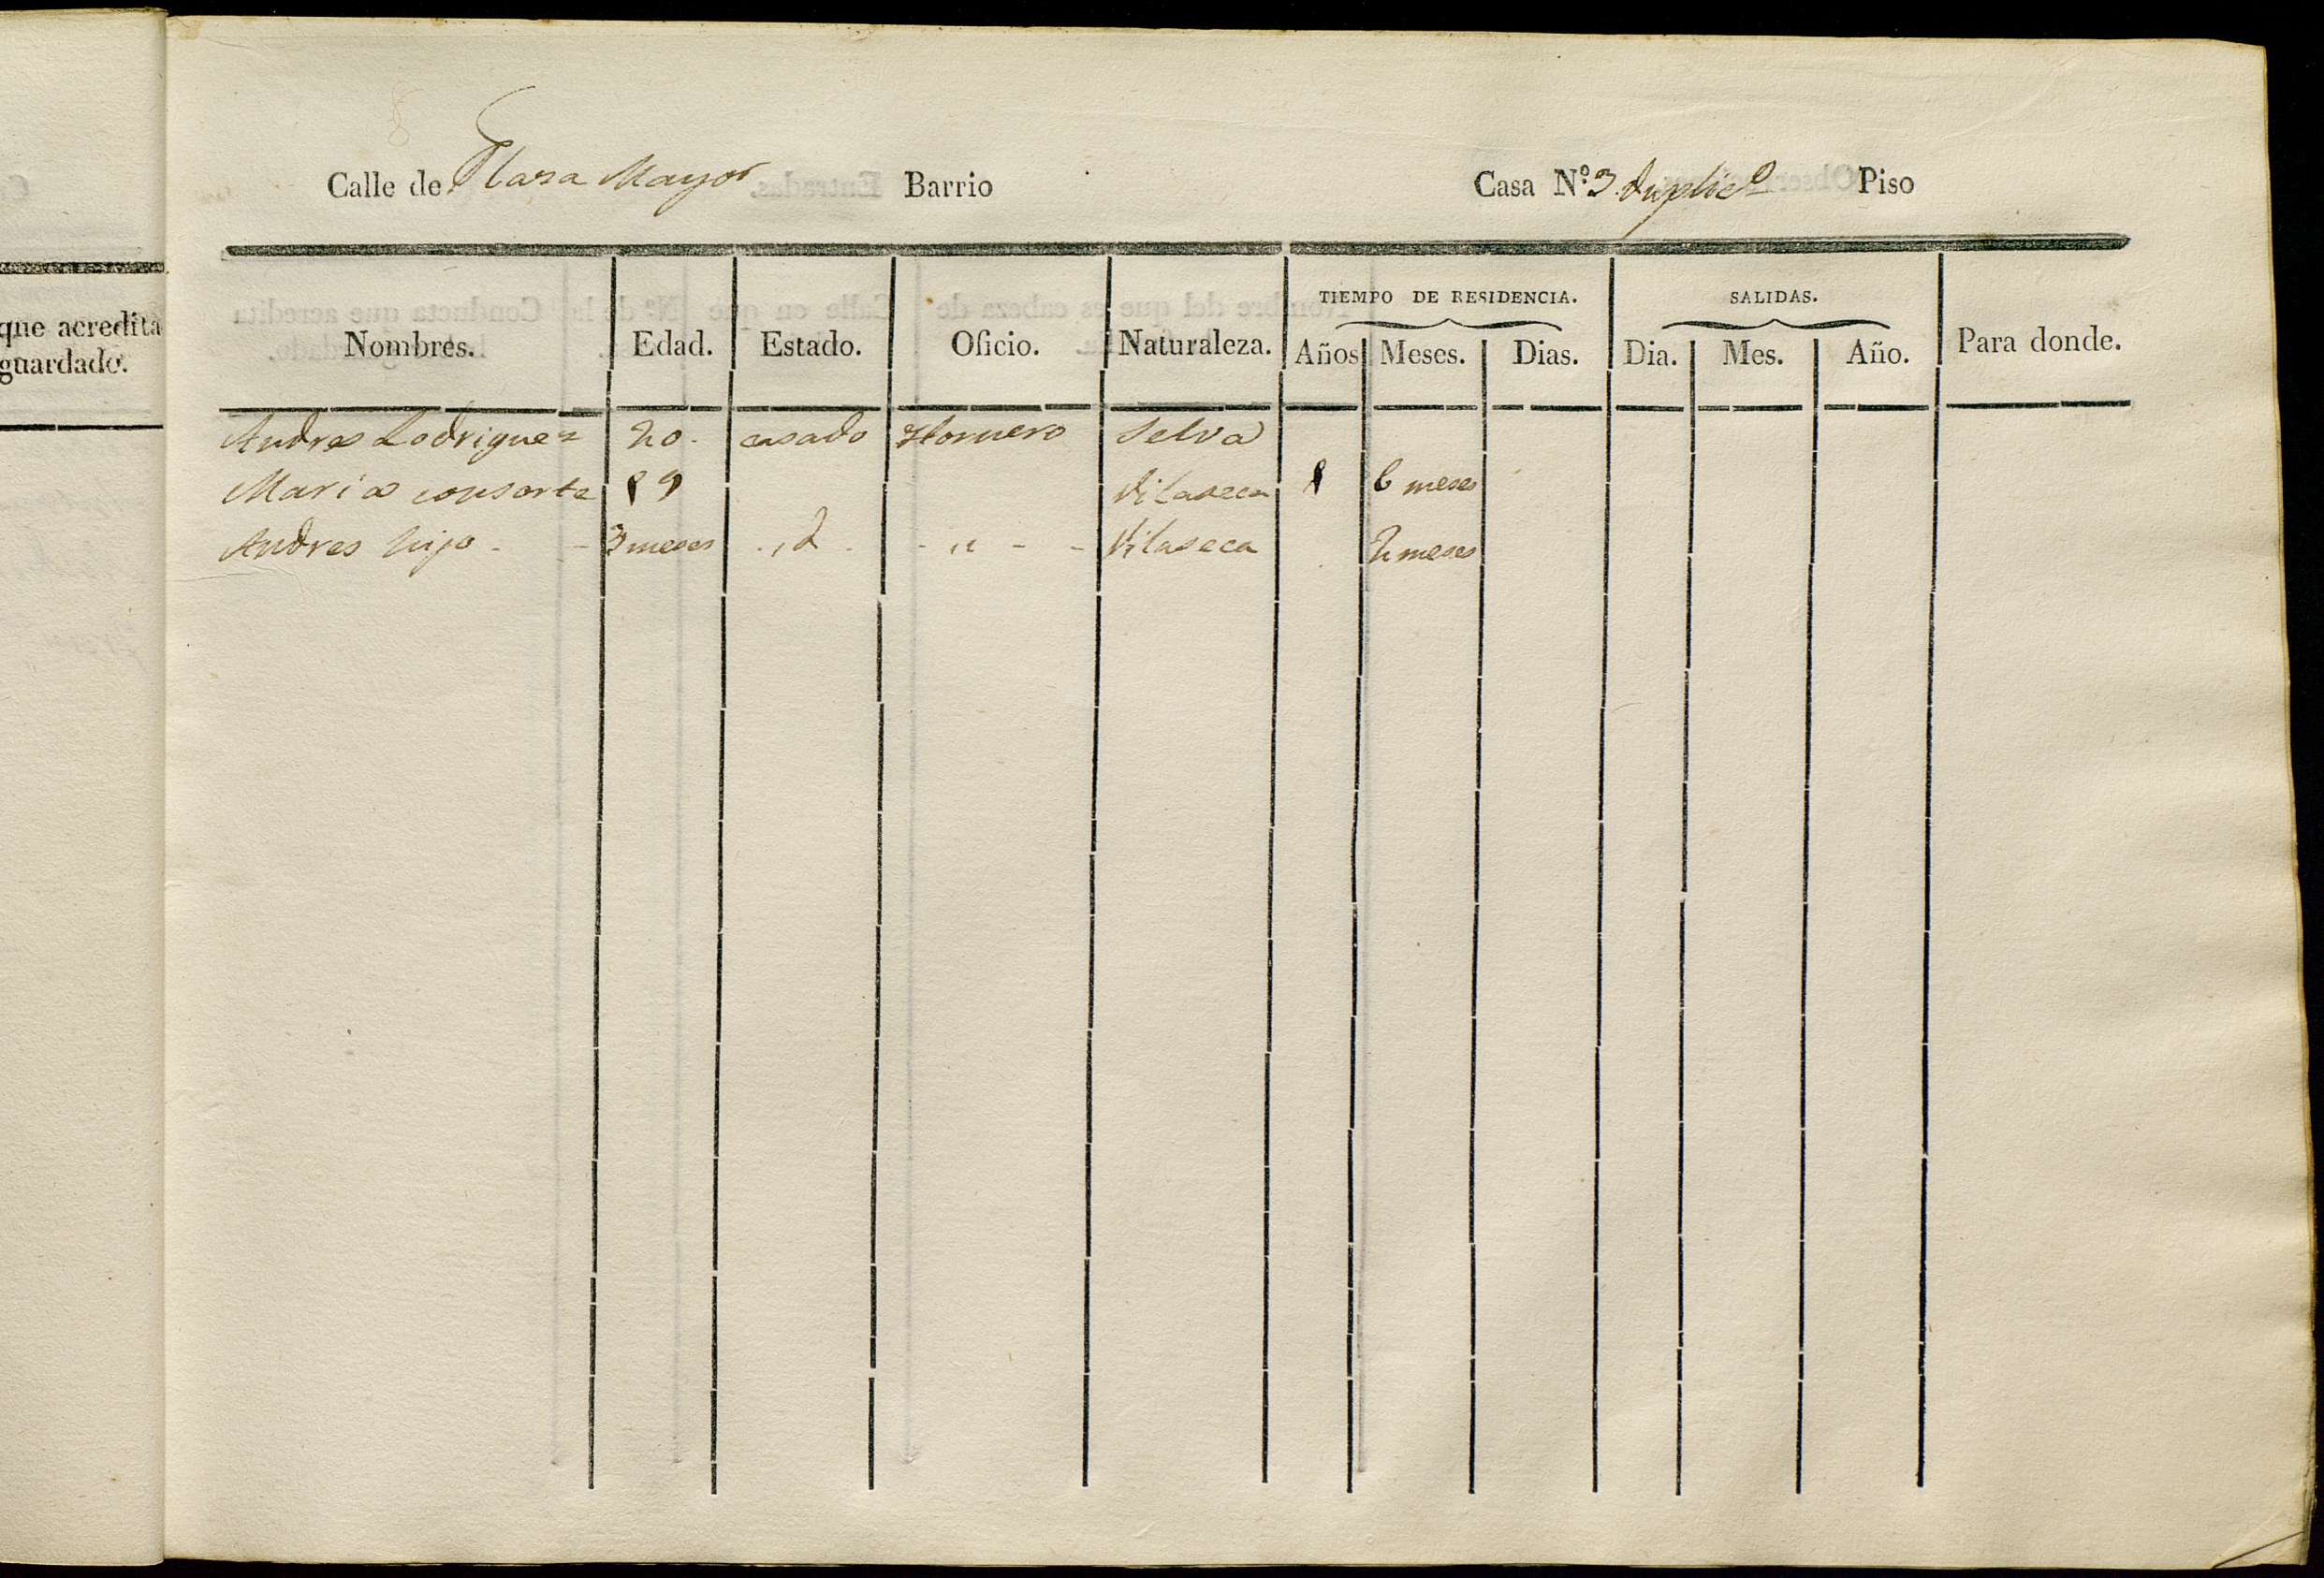 que acredita
guardado.
Calle de Plasa Mayor Barrio Casa N.º 3 duplicº Piso
TIEMPO DE RESIDENCIA. SALIDAS.
Nombres. Edad. Estado. Oficio. Naturaleza. Años Meses. Dias. Dia. Mes. Año. Para donde.
Andres Rodriguez 20. casado Hornero Selva
Maria consorte 19 Vilaseca 1 6 meses
Andres hijo - - 3 meses . id . - " - - Vilaseca 2 meses